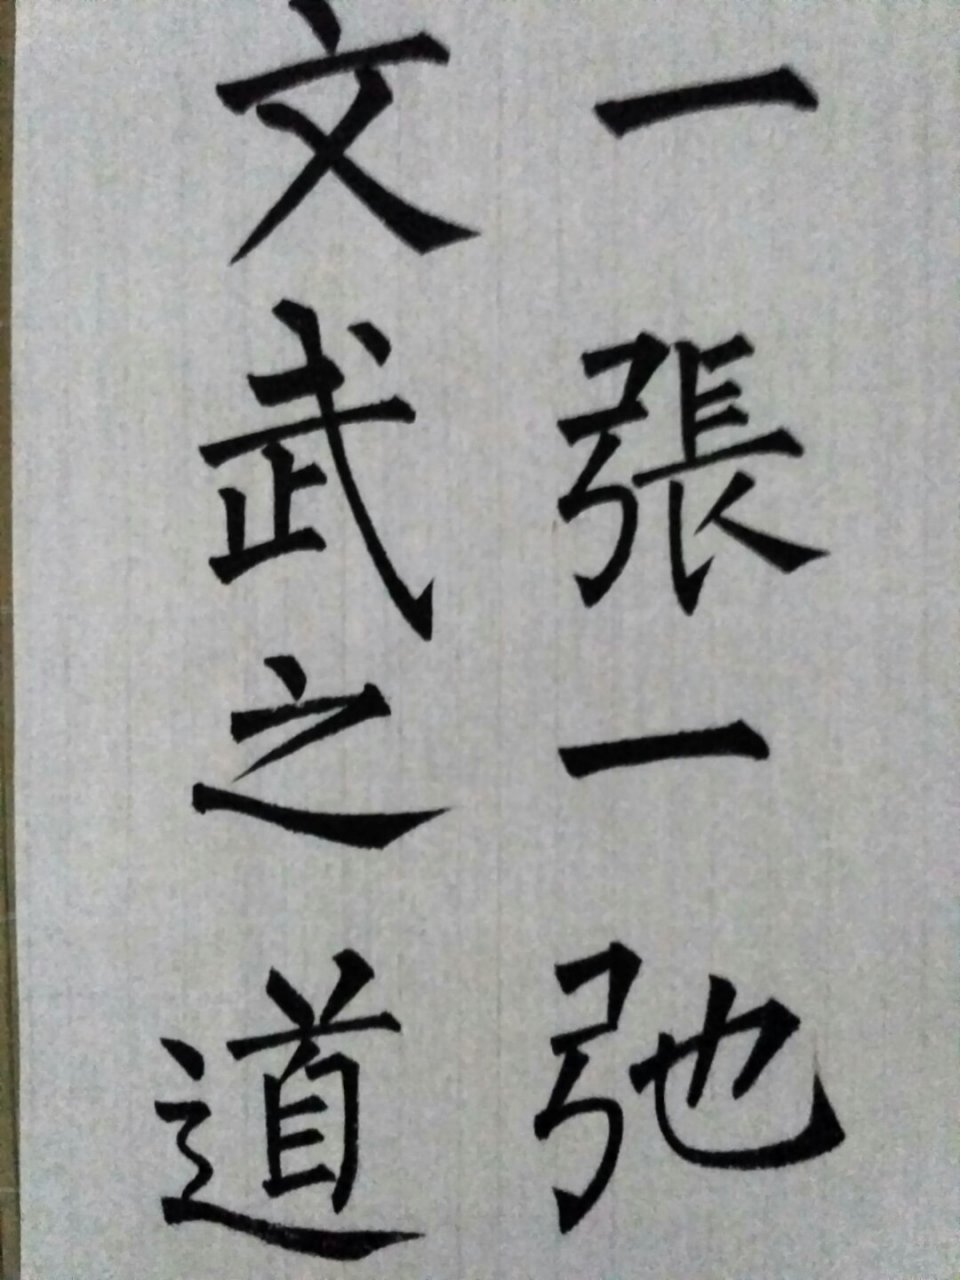 一張一弛
文武之道